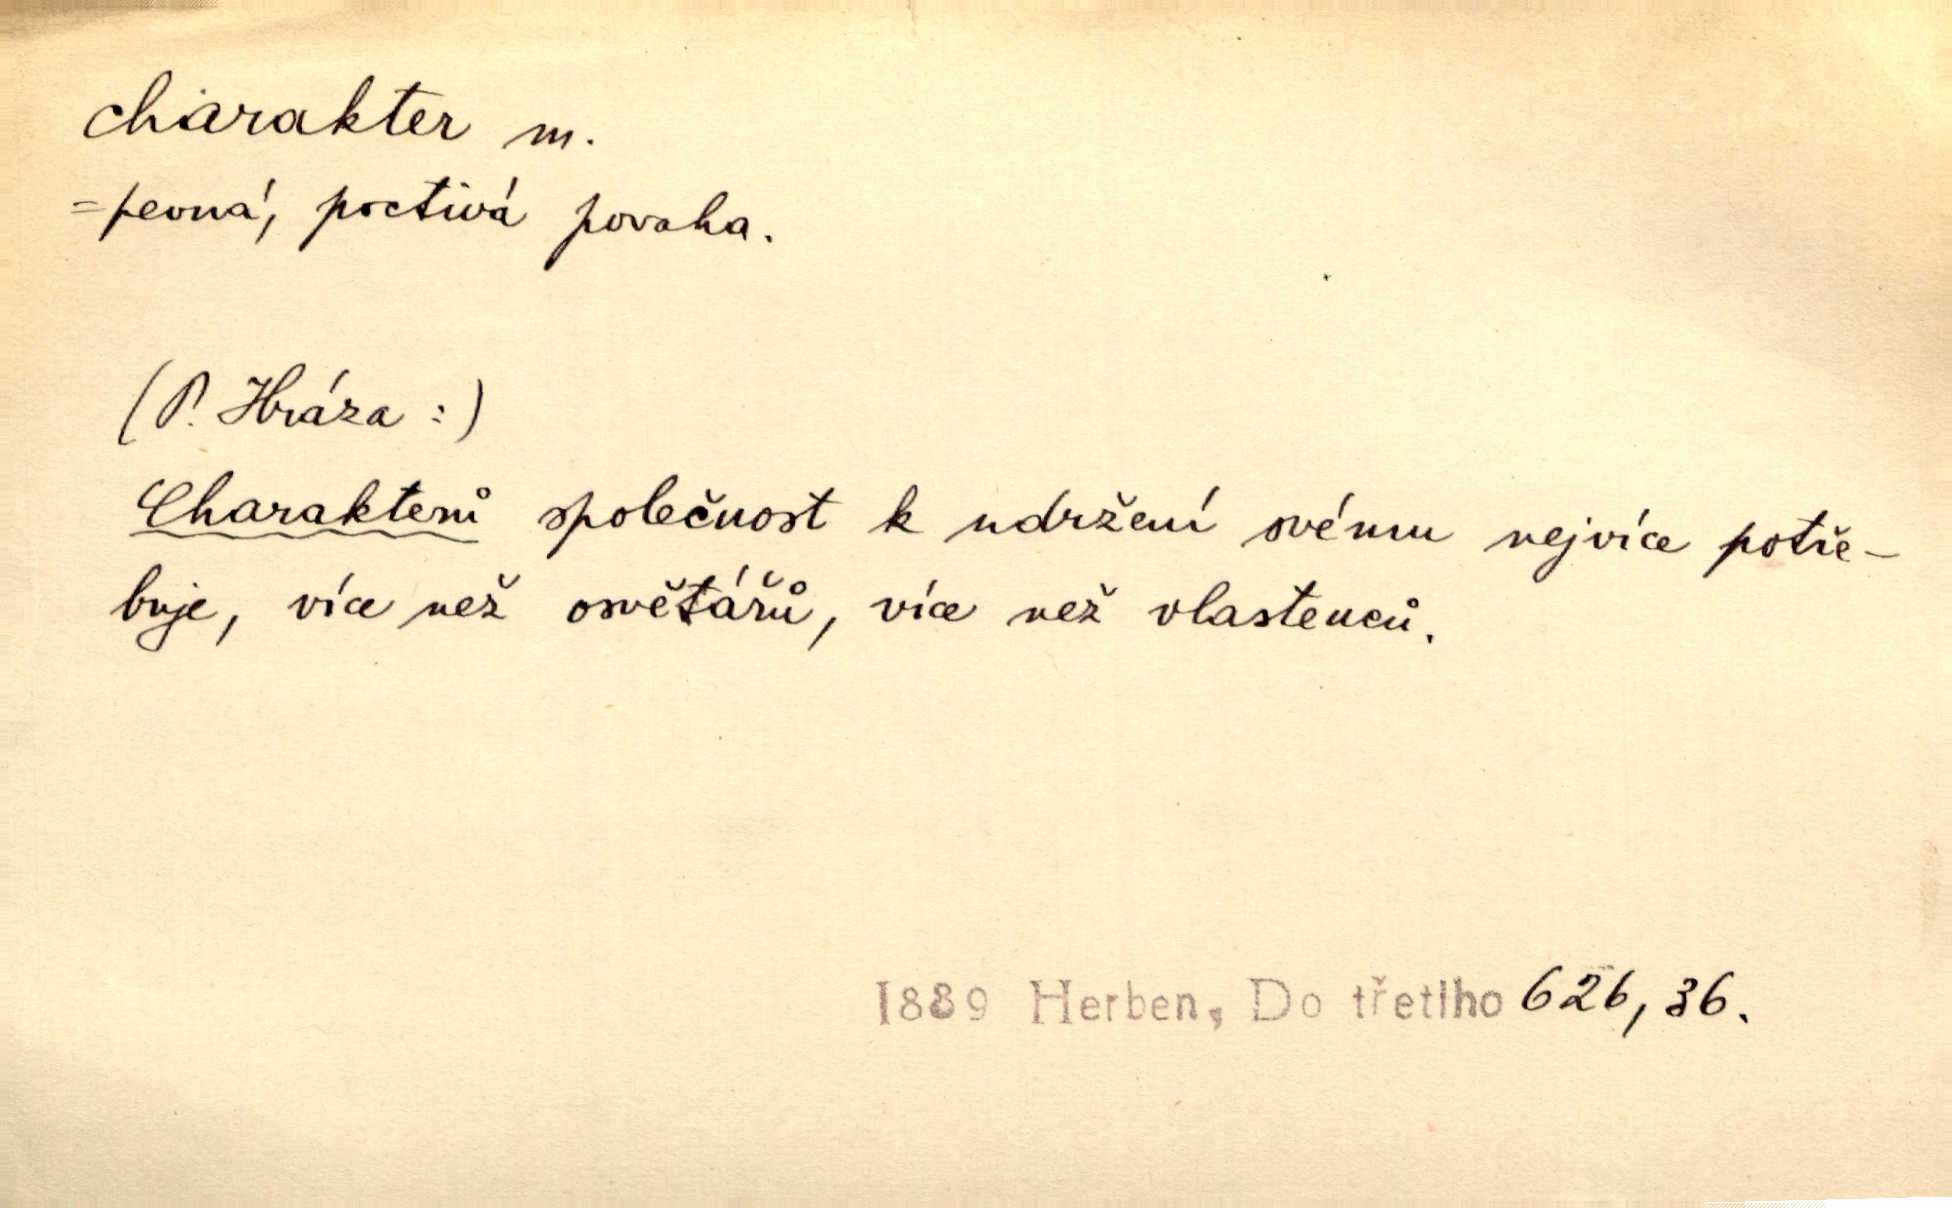 charakter m.
=pevná, poctivá povaha.
(P. Hráza:)
Charakterů společnost k udržení svému nejvíce potře-
buje, více než osvětářů, více než vlastenců.
1889 Herben, Do třetího 626, 36.